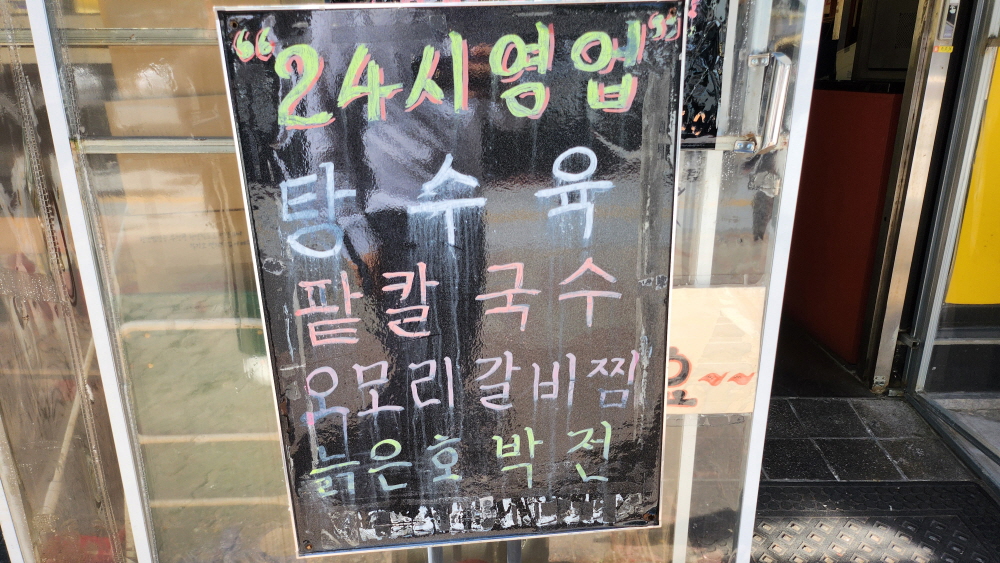 “24시영업”
탕수육
팥칼국수
오모리갈비찜
늙은호박전
요~~